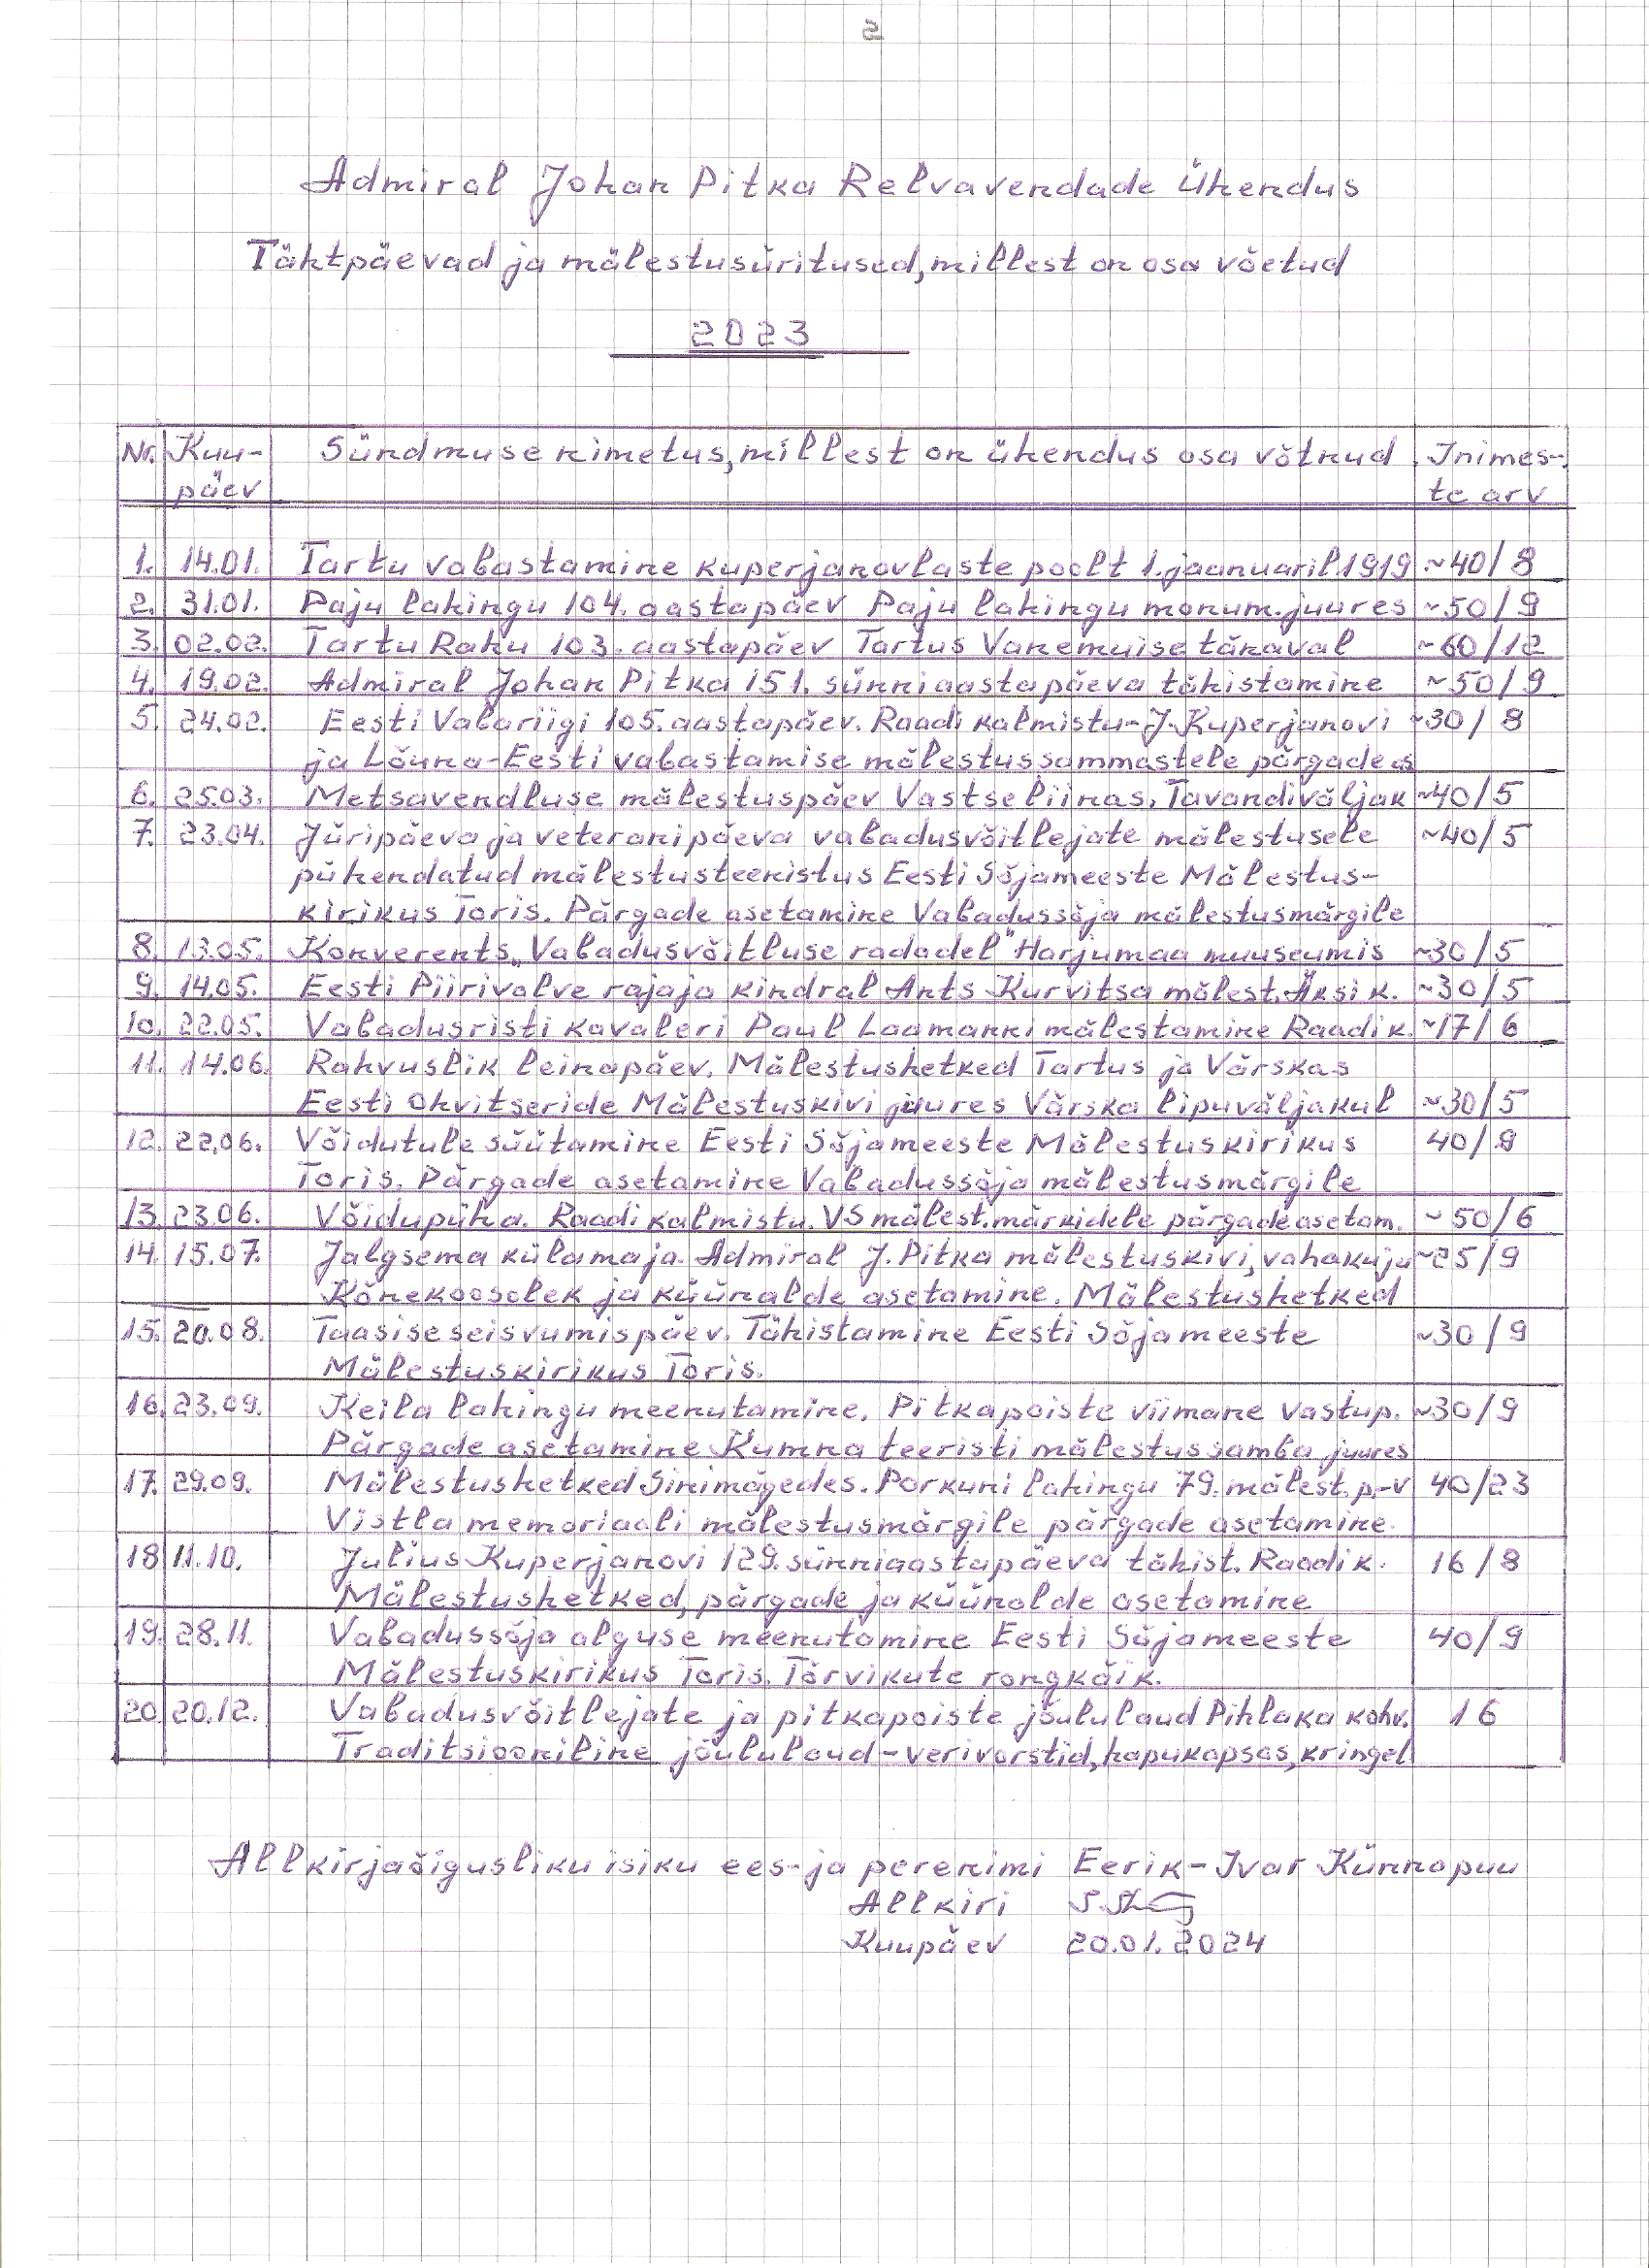 2
Admiral Johan Pitka Relvavendade Ühendus
Tähtpäevad ja mälestusüritused, millest on osa võetud
2023
Nr. Kuu- Sündmuse nimetus, millest on ühendus osa võtnud Inimes-
päev te arv
1. 14.01. Tartu vabastamine kuperjanovlaste poolt 1. jaanuaril 1919 ~40/8
2. 31.01. Paju lahingu 104. aastapäev Paju lahingu monum. juures ~50/9
3. 02.02. Tartu Rahu 103. aastapäev Tartus Vanemuise tänaval ~60/12
4. 19.02. Admiral Johan Pitka 151. sünniaastapäeva tähistamine ~50/9
5. 24.02. Eesti Vabariigi 105. aastapäev. Raadi kalmistu-J. Kuperjanovi ~30/8
ja Lõuna-Eesti vabastamise mälestussammastele pärgade as
6. 25.03. Metsavendluse mälestuspäev Vastseliinas, Tavandiväljak ~40/5
7. 23.04. Jüripäeva ja veteranipäeva vabadusvõitlejate mälestusele ~40/5
pühendatud mälestusteenistus Eesti Sõjameeste Mälestus-
kirikus Toris. Pärgade asetamine Vabadussõja mälestusmärgile
8. 13.05. Konverents „Vabadusvõitluse radadel" Harjumaa muuseumis ~30/5
9. 14.05. Eesti Piirivalve rajaja kindral Ants Kurvitsa mälest. Äksi k. ~30/5
10. 22.05. Vabadusristi kavaleri Paul Laamanni mälestamine Raadi k. ~17/6
11. 14.06. Rahvuslik leinapäev. Mälestushetked Tartus ja Värskas
Eesti Ohvitseride Mälestuskivi juures Värska lipuväljakul ~30/5
12. 22.06. Võidutule süütamine Eesti Sõjameeste Mälestuskirikus 40/9
Toris. Pärgade asetamine Vabadussõja mälestusmärgile
13. 23.06. Võidupüha. Raadi kalmistu. VS mälest. märkidele pärgade asetam. ~50/6
14. 15.07. Jalgsema külamaja. Admiral J. Pitka mälestuskivi, vahakuju ~25/9
Kõnekoosolek ja küünalde asetamine. Mälestushetked
15. 20.08. Taasiseseisvumispäev. Tähistamine Eesti Sõjameeste ~30/9
Mälestuskirikus Toris.
16. 23.09. Keila lahingu meenutamine. Pitkapoiste viimane vastup. ~30/9
Pärgade asetamine Kumna teeristi mälestussamba juures
17. 29.09. Mälestushetked Sinimägedes. Porkuni lahingu 79. mälest. p-v 40/23
Vistla memoriaali mälestusmärgile pärgade asetamine.
18 11.10. Julius Kuperjanovi 129. sünniaastapäeva tähist. Raadi k. 16/8
Mälestushetked, pärgade ja küünalde asetamine
19. 28.11. Vabadussõja alguse meenutamine Eesti Sõjameeste 40/9
Mälestuskirikus Toris. Tõrvikute rongkäik.
20. 20.12. Vabadusvõitlejate ja pitkapoiste jõululaud Pihlaka kohv. 16
Traditsiooniline jõululaud-verivorstid, hapukapsas, kringel
Allkirjaõigusliku isiku ees- ja perenimi Eerik-Ivar Künnapuu
Allkiri
Kuupäev 20.01.2024